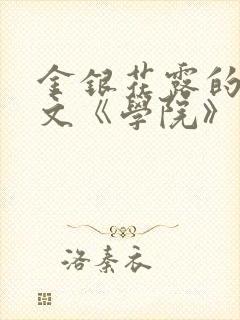 金銀花露的
文《學院》
洛秦衣